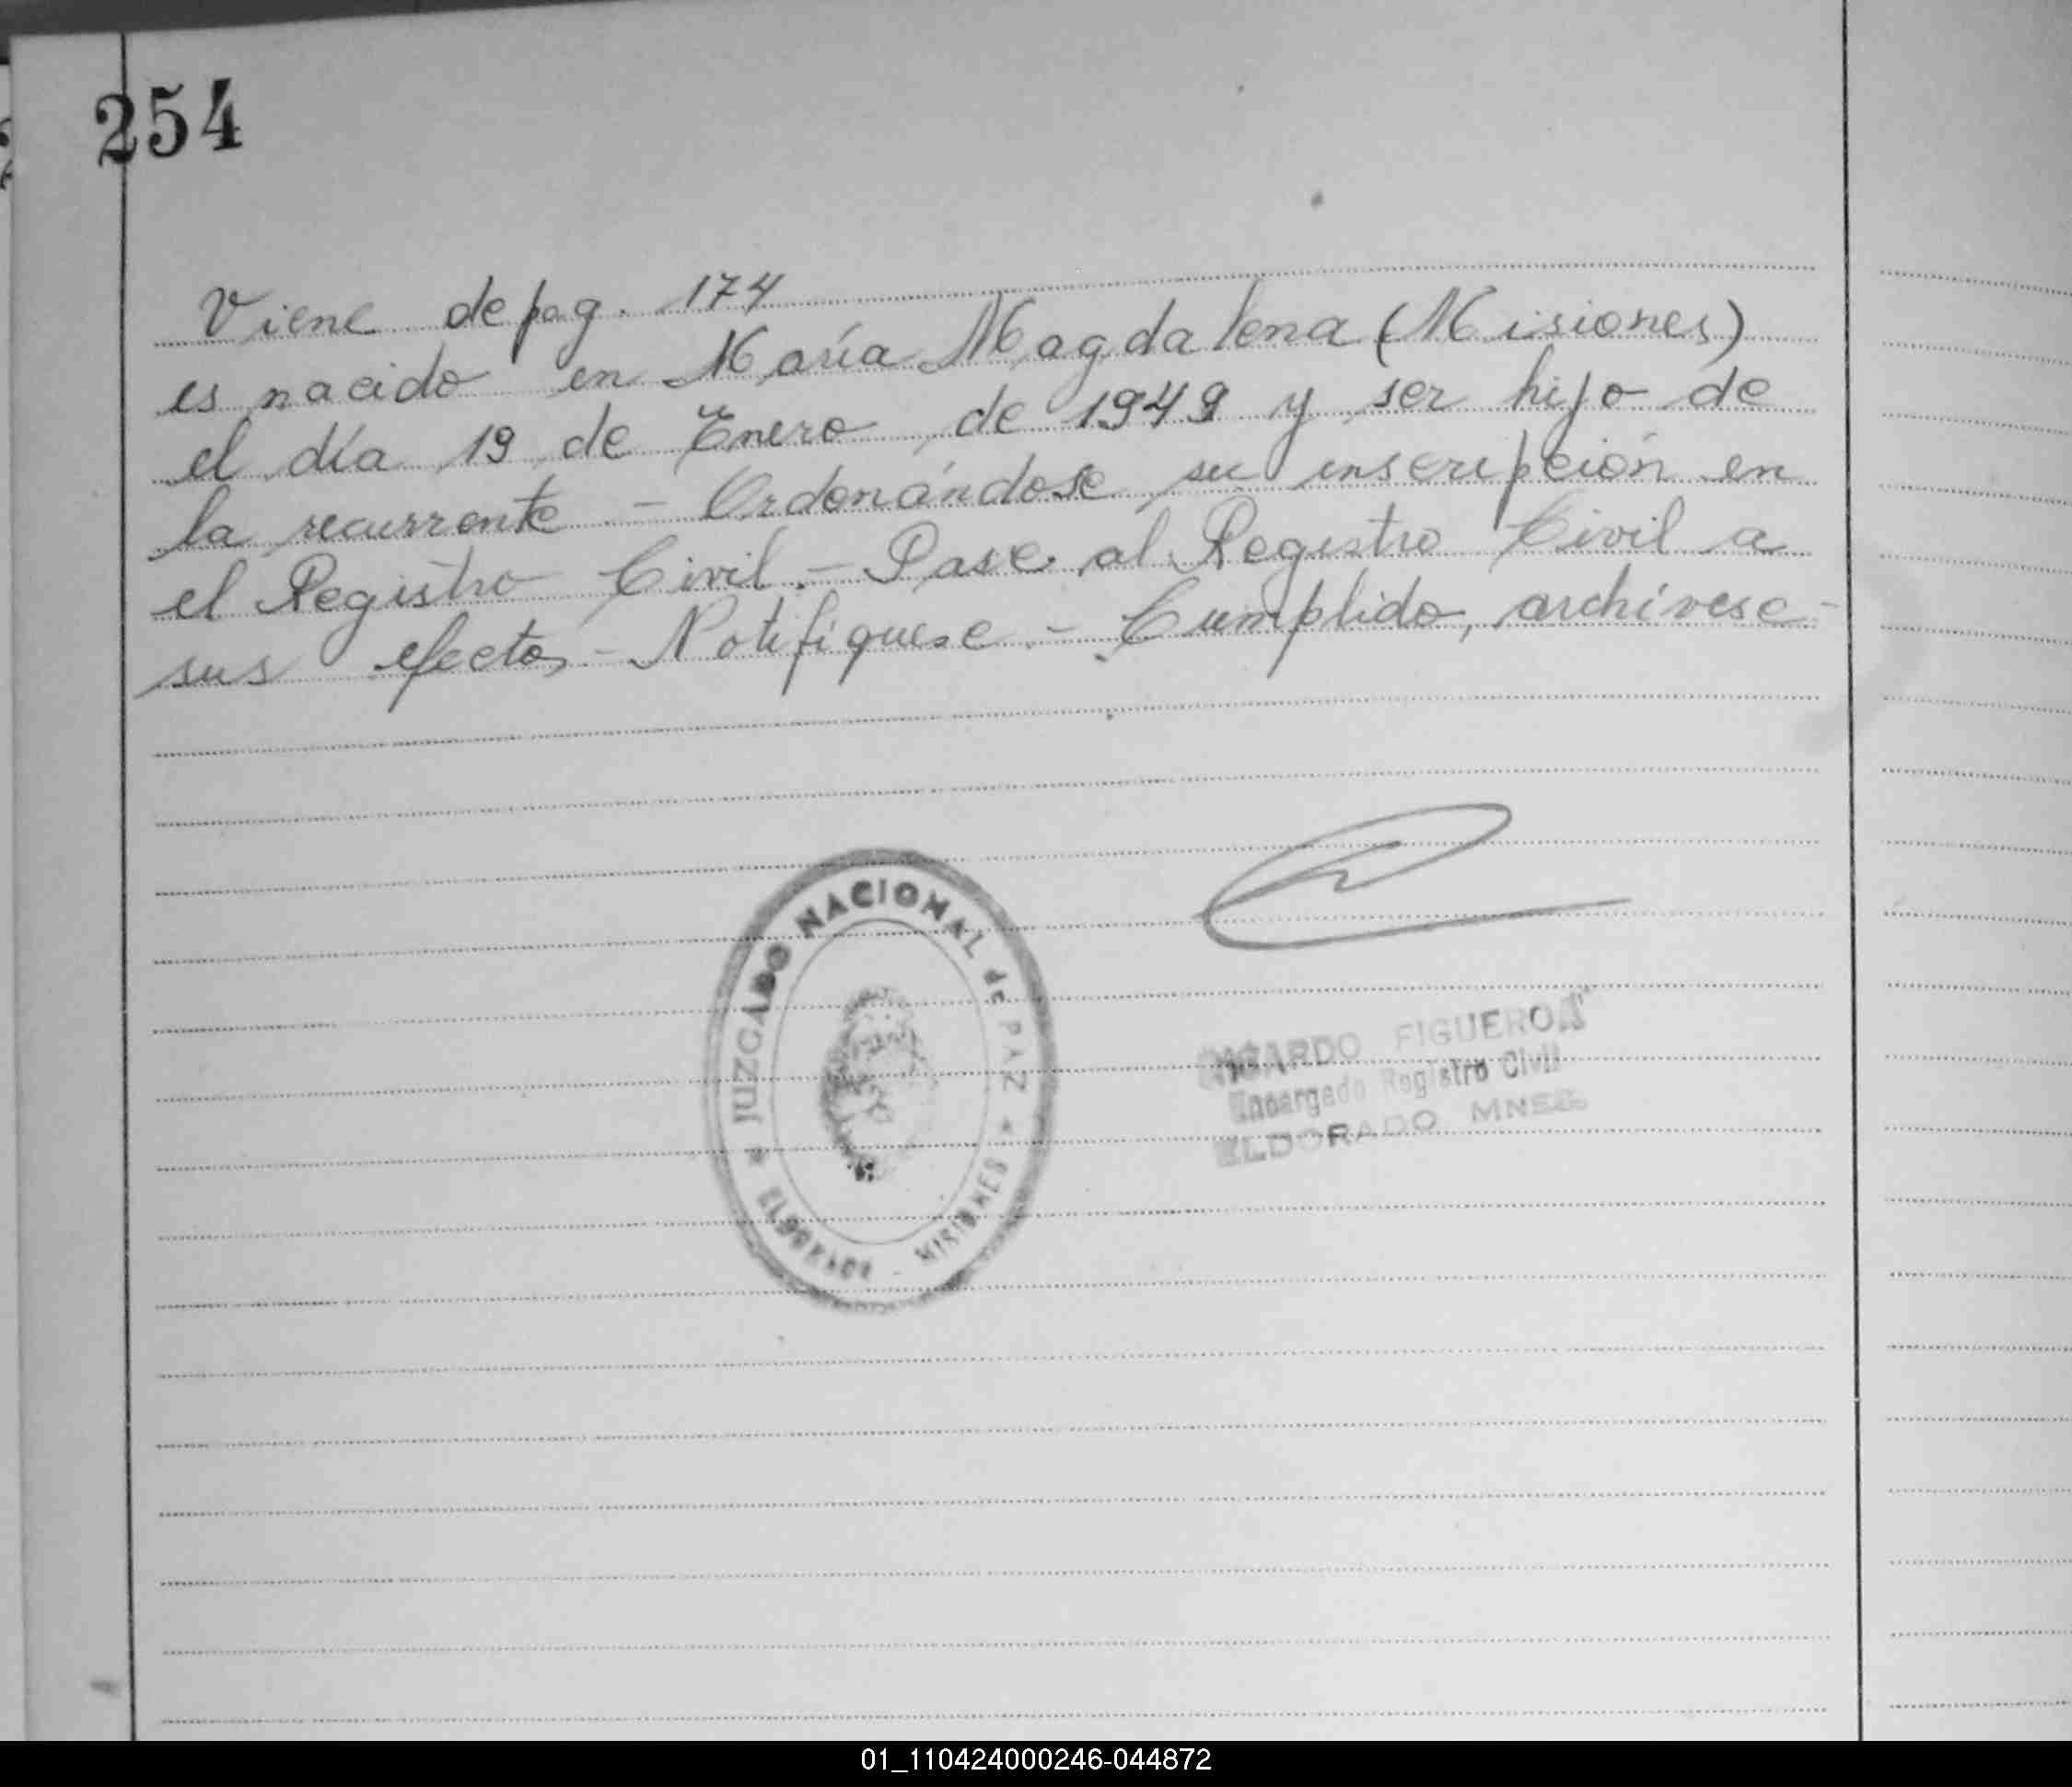 254
Viene de pag. 174
es nacido en María Magdalena (Misiones)
el día 19 de Enero de 1949 y ser hijo de
la recurrente - Ordonándose su inscripción en
el Registro Civil. - Pase al Registro Civil a
sus efectos - Notifiquese - Cumplido, archívese -
JUZGADO NACIONAL de PAZ
ELDORADO - MISIONES
RICARDO FIGUEROA
Encargado Registro Civil
ELDORADO MNES
01_110424000246-044872